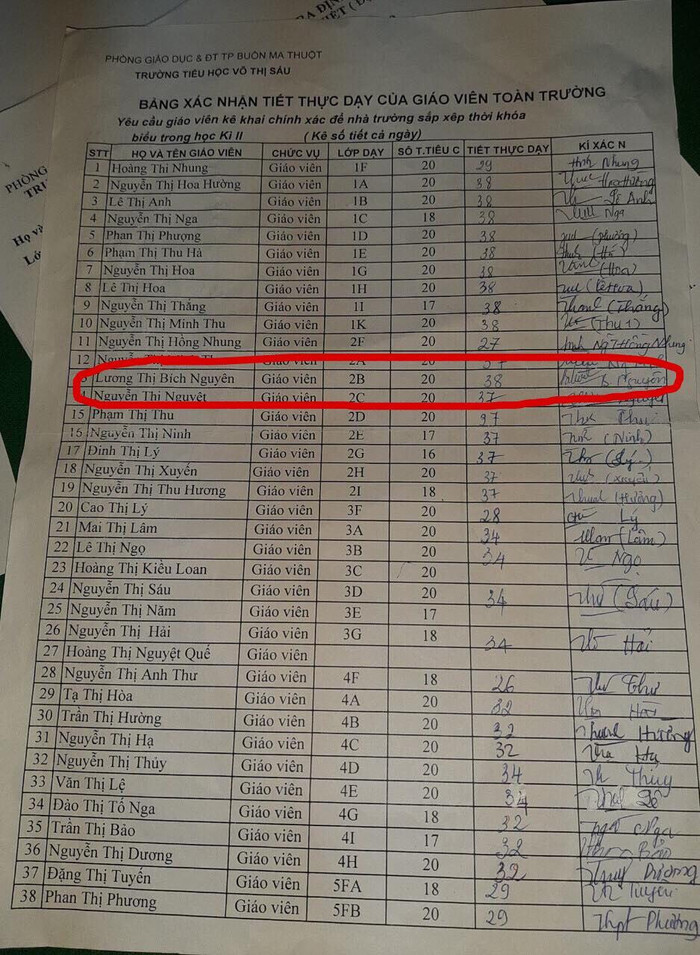 PHÒNG GIÁO DỤC & ĐT TP BUÔN MA THUỘT
TRƯỜNG TIỂU HỌC VÕ THỊ SÁU
BẢNG XÁC NHẬN TIẾT THỰC DẠY CỦA GIÁO VIÊN TOÀN TRƯỜNG
Yêu cầu giáo viên kê khai chính xác để nhà trường sắp xếp thời khóa
biểu trong học Kì II ( Kê số tiết cả ngày)
STT HỌ VÀ TÊN GIÁO VIÊN CHỨC VỤ LỚP DẠY SỐ T.TIÊU C TIẾT THỰC DẠY KÍ XÁC N
1 Hoàng Thị Nhung Giáo viên 1F 20 29 Nhung
2 Nguyễn Thị Hoa Hường Giáo viên 1A 20 38 Hoa Hường
3 Lê Thị Anh Giáo viên 1B 20 38 Lê Anh
4 Nguyễn Thị Nga Giáo viên 1C 18 38 Nga
5 Phan Thị Phượng Giáo viên 1D 20 38 (phượng)
6 Phạm Thị Thu Hà Giáo viên 1E 20 38 (Hà)
7 Nguyễn Thị Hoa Giáo viên 1G 20 38 (Hoa)
8 Lê Thị Hoa Giáo viên 1H 20 38
9 Nguyễn Thị Thắng Giáo viên 1I 17 38 (Thắng)
10 Nguyễn Thị Minh Thu Giáo viên 1K 20 38 (Thu1)
11 Nguyễn Thị Hồng Nhung Giáo viên 2F 20 27 Hồng Nhung
12 Giáo viên 2A 20 37
Lương Thị Bích Nguyên Giáo viên 2B 20 38 B Nguyên
Nguyễn Thị Nguyệt Giáo viên 2C 20 37
15 Phạm Thị Thu Giáo viên 2D 20 37 Thu
16 Nguyễn Thị Ninh Giáo viên 2E 17 37 (Ninh)
17 Đinh Thị Lý Giáo viên 2G 16 37 (Lý)
18 Nguyễn Thị Xuyến Giáo viên 2H 20 37 (Xuyến)
19 Nguyễn Thị Thu Hương Giáo viên 2I 18 37 (Hương)
20 Cao Thị Lý Giáo viên 3F 20 28 Lý
21 Mai Thị Lâm Giáo viên 3A 20 34 (Lâm)
22 Lê Thị Ngọ Giáo viên 3B 20 34 Ngọ
23 Hoàng Thị Kiều Loan Giáo viên 3C 20
24 Nguyễn Thị Sáu Giáo viên 3D 20 34 (Sáu)
25 Nguyễn Thị Năm Giáo viên 3E 17
26 Nguyễn Thị Hải Giáo viên 3G 18 34 Hải
27 Hoàng Thị Nguyệt Quế Giáo viên
28 Nguyễn Thị Anh Thư Giáo viên 4F 18 26 Thư
29 Tạ Thị Hòa Giáo viên 4A 20 32
30 Trần Thị Hường Giáo viên 4B 20 32 Hường
31 Nguyễn Thị Hạ Giáo viên 4C 20 32 Hạ
32 Nguyễn Thị Thủy Giáo viên 4D 20 34 Thủy
33 Văn Thị Lệ Giáo viên 4E 20 34 Lệ
34 Đào Thị Tố Nga Giáo viên 4G 18 32 Nga
35 Trần Thị Bảo Giáo viên 4I 17 32 Bảo
36 Nguyễn Thị Dương Giáo viên 4H 20 32 Dương
37 Đặng Thị Tuyến Giáo viên 5FA 18 29 Tuyến
38 Phan Thị Phương Giáo viên 5FB 20 29 Phương